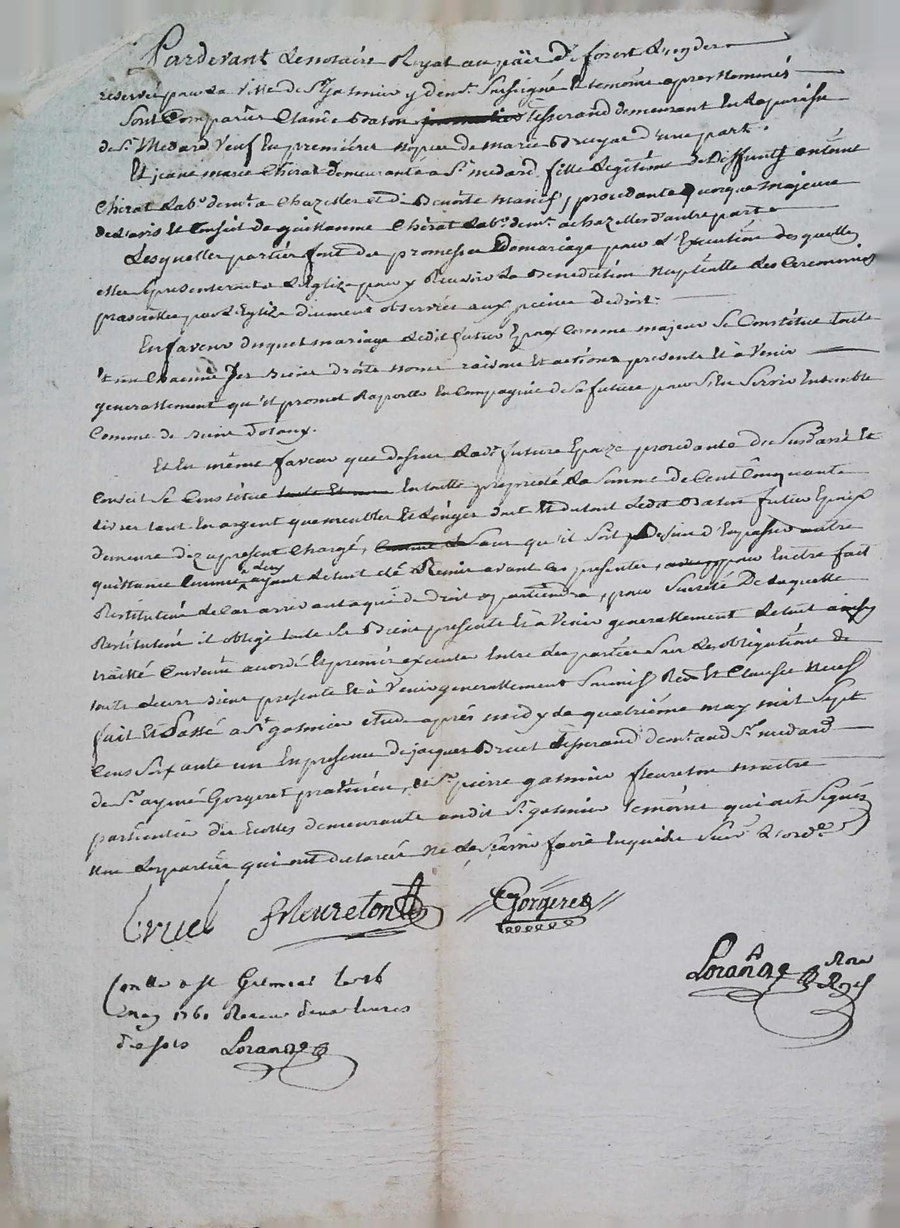 Pardevant Le notaire Royal au païs de forest Luy der
reservé pour la Ville de St Galmier y demt soussigné Et temoins apres Nommés
Sont Comparus Claude tisserand demeurant En la paroisse
de St Medard Veuf En premières nopces de marie Bruyas d'une part.
Et jeane marie Chirat demeurante a St medard fille Legitime de Deffunts antoine
Chirat Labr demt a Chazelles et de Benoite procedante quoique majeure
de L'avis Et Conseil de guillaume Chirat Labr demt a chazelles d'autre part
Lesquelles parties font des promesses De mariage pour L'Execution desquelles
elles se presenteront a L'Eglize pour y Recevoir La Benediction Nuptialle Les Ceremonies
prescrittes par L'Eglize Duement observées aux peines de droit.
En faveur duquel mariage Ledit futur Epoux Comme majeur Se Constitue tous
Et un Chacuns ses Biens droits noms raisons Et actions presents Et à Venir
generallement qu'il promet Raporter En Compagnie de sa future pour S'En Servir Ensemble
Comme de Biens Dotaux.
Et En même faveur que dessus Ladte future Epouze procedante du Susd avis Et
Conseil Se Constitue En toutte proprieté La Somme de Cent Cinquante
Livres tant En argent que meubles Et Linges dont Et du tout Ledit futur Epoux
demeure dez a present Chargé, Sans qu'il Soit Besoin d'En passer autre
quittance Comme Le tout été Remis avant Ces presentes, pour En etre fait
Restitution Le Cas arrivant a qui de Droit appartiendra, pour Sureté De laquelle
Restitution il oblige tous Ses Biens presents Et à Venir generallement Le tout ainsy
traitté Convenu accordé Et promis executer Entre Les parties Sous Les obligations de
tous Leurs Biens presents Et à Venir generallement Soumis Ren Et Clauses
fait Et Passé a St galmier etude après midy Le quatrième may mil Sept
Cens Soixante un En presence de jacques Bruel tisserand demt aud St medard
de Sr aymé Gorgeret praticien, Et Sr pierre galmier fleureton maitre
particulier des Ecolles demeurants audit St galmier temoins qui ont Signés
Non Les parties qui ont declarés Ne Le Scavoir faire Enquis Suivt L'ordce
bruel fleureton Gorgeret
Lorange Nore Royal
Con lle a St Galmier le 16
may 1761 Receu deux livres
dix sols Lorange